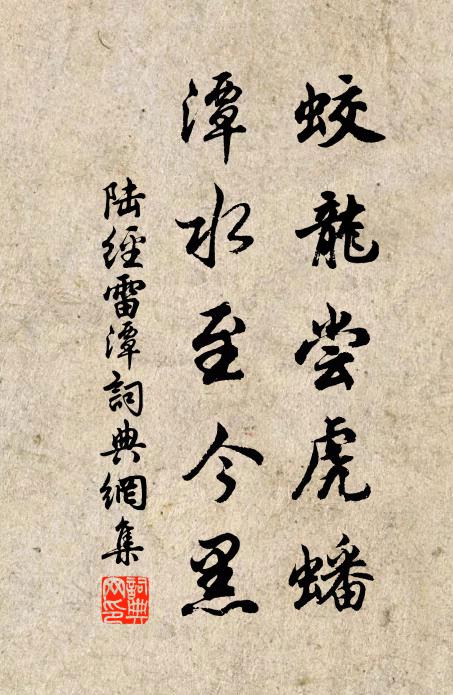 蛟龍尝虎蟠
潭水至今黑
陆經雷潭詞典網集
詞典網印